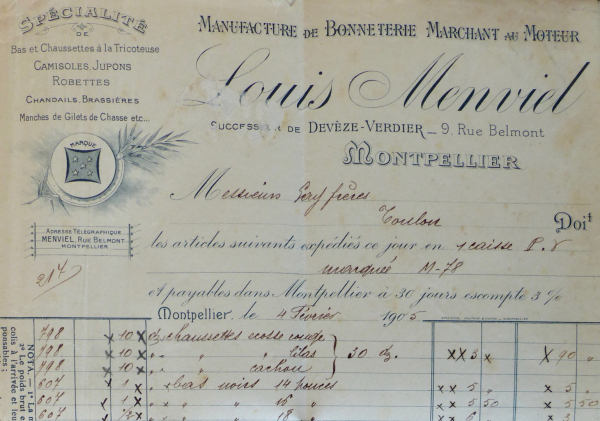 SPÉCIALITÉ
DE
Bas et Chaussettes à la Tricoteuse
CAMISOLES, JUPONS
ROBETTES
CHANDAILS, BRASSIÈRES
Manches de Gilets de Chasse etc...
MARQUE
ADRESSE TÉLÉGRAPHIQUE
MENVIEL, RUE BELMONT
MONTPELLIER
214
MANUFACTURE DE BONNETERIE MARCHANT AU MOTEUR
Louis Menviel
SUCCESSEUR DE DEVÈZE-VERDIER _ 9. Rue Belmont
MONTPELLIER
Messieurs Gery frères
Toulon
Doit
les articles suivants expédiés ce jour en 1 caisse P.V
marquée M-78
et payables dans Montpellier à 30 jours escompte 3 %
Montpellier, le 4 Février 1905
798 x 10 x dz chaussettes crosse rouge
798 x 10 x " " " lilas 30 dz. xx 3 x x 90 "
798 x 10 x " " " cachou
607 x 1 x " x bas noirs 14 pouces x 5 " x 5 "
607 x 1 x " " " 16 " x 5 50 x 5 50
607 x 1/2 x " " " 18 " x 6 " x 3 "
NOTA. — 1° La
2° Le poids brut
colis à l'arrivée et
ponsables;